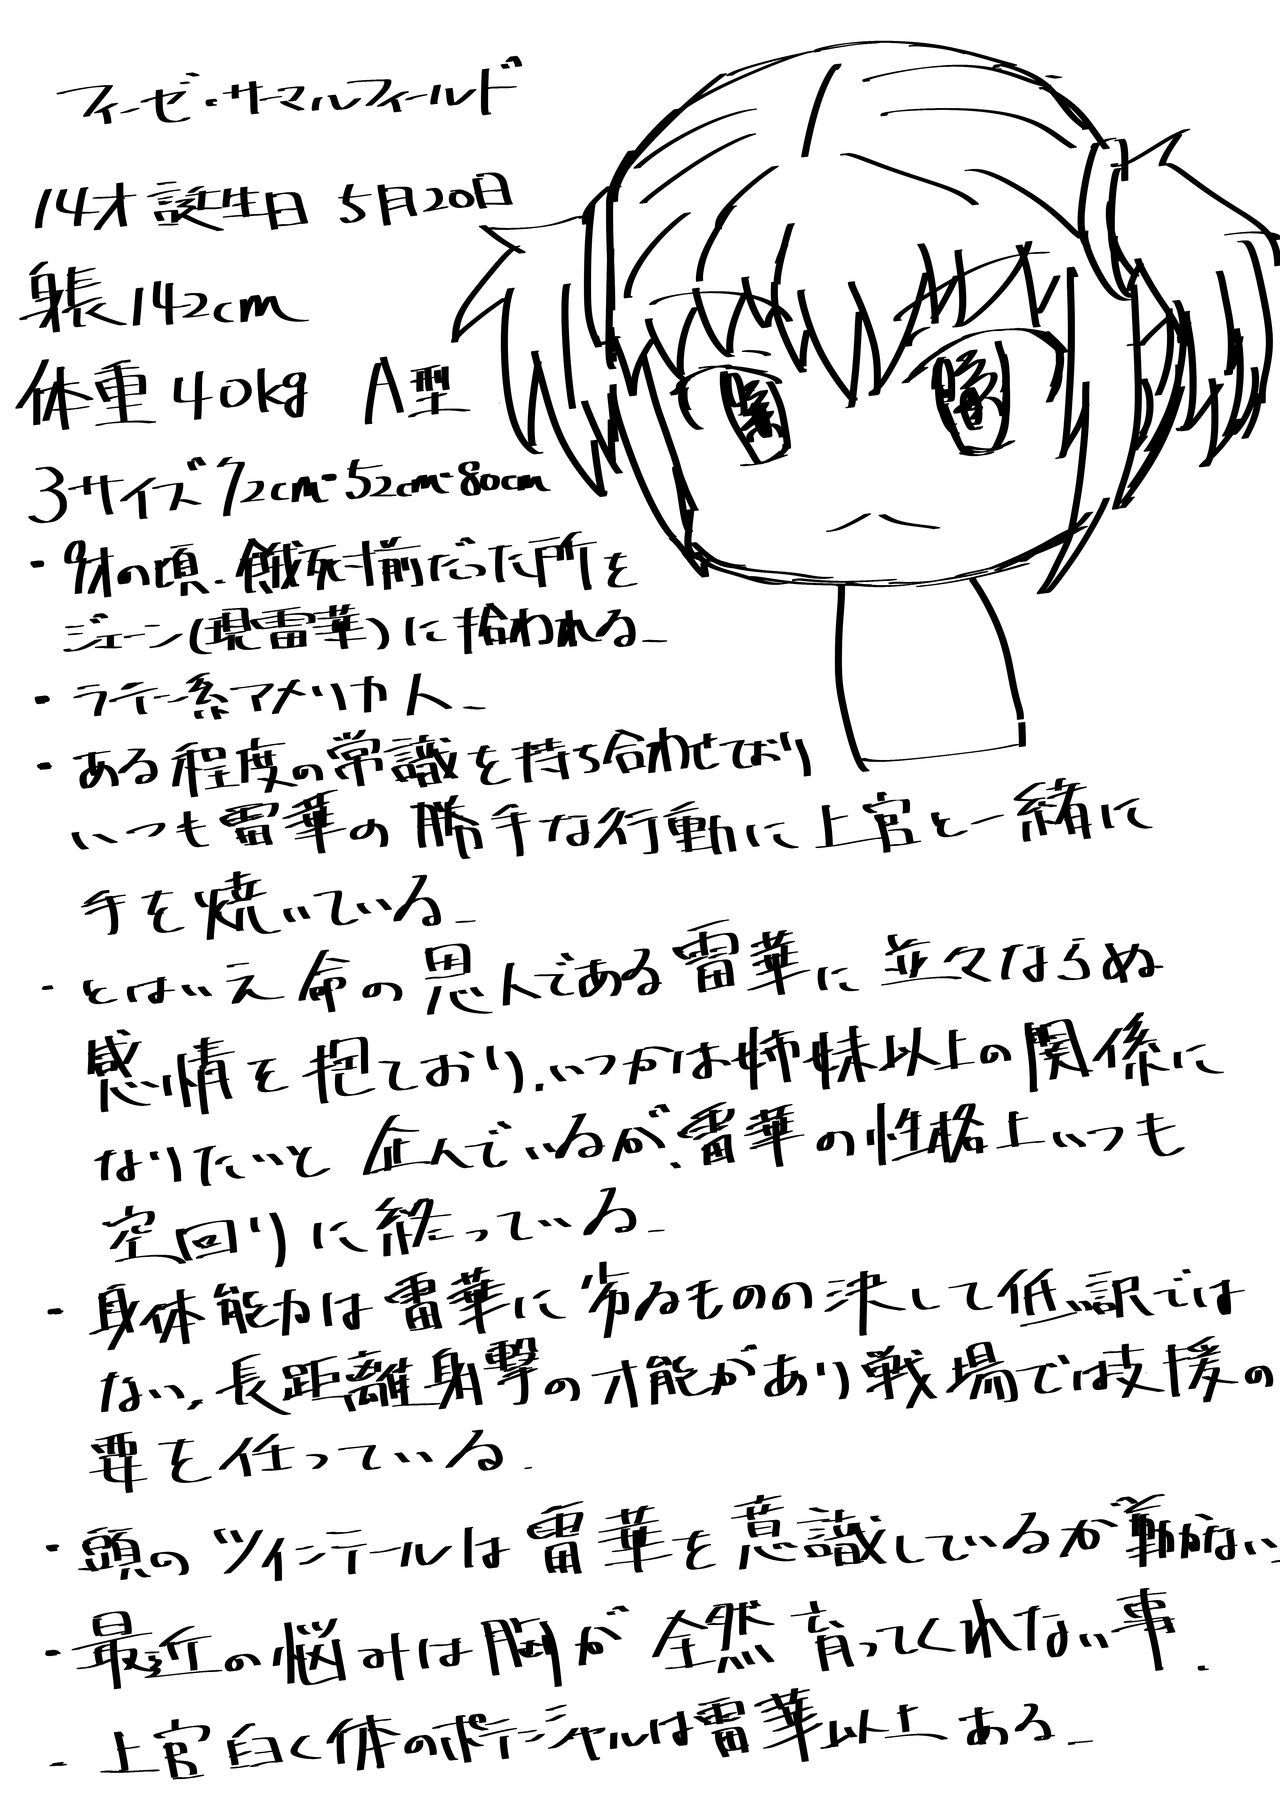 フィーゼ・サーマルフィールド
14才 誕生日 5月20日
身長142cm
体重40kg A型
3サイズ72cm・52cm・80cm
・9才の頃、餓死寸前だった所を
ジェーン(現雷華)に拾われる_
・ラテン系アメリカ人_
・ある程度の常識を持ち合わせており
いつも雷華の勝手な行動に上官と一緒に
手を焼いている_
・とはいえ命の恩人である雷華に並々ならぬ
感情を抱ており、いつかは姉妹以上の関係に
なりたいと企んでいるが、雷華の性格上いつも
空回りに終っている_
・身体能力は雷華に劣るものの決して低い訳では
ない、長距離射撃の才能があり戦場では支援の
要を任っている.
・頭のツインテールは雷華を意識しているが動かない_
・最近の悩みは胸が全然育ってくれない事.
・上官曰く体のポテンシャルは雷華以上ある_